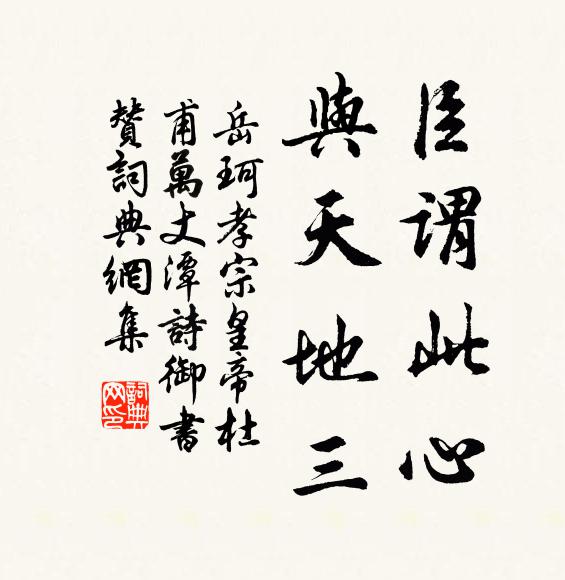 臣謂此心
與天地三
岳珂孝宗皇帝杜
甫萬丈潭詩御書
贊詞典網集
詞典
网印